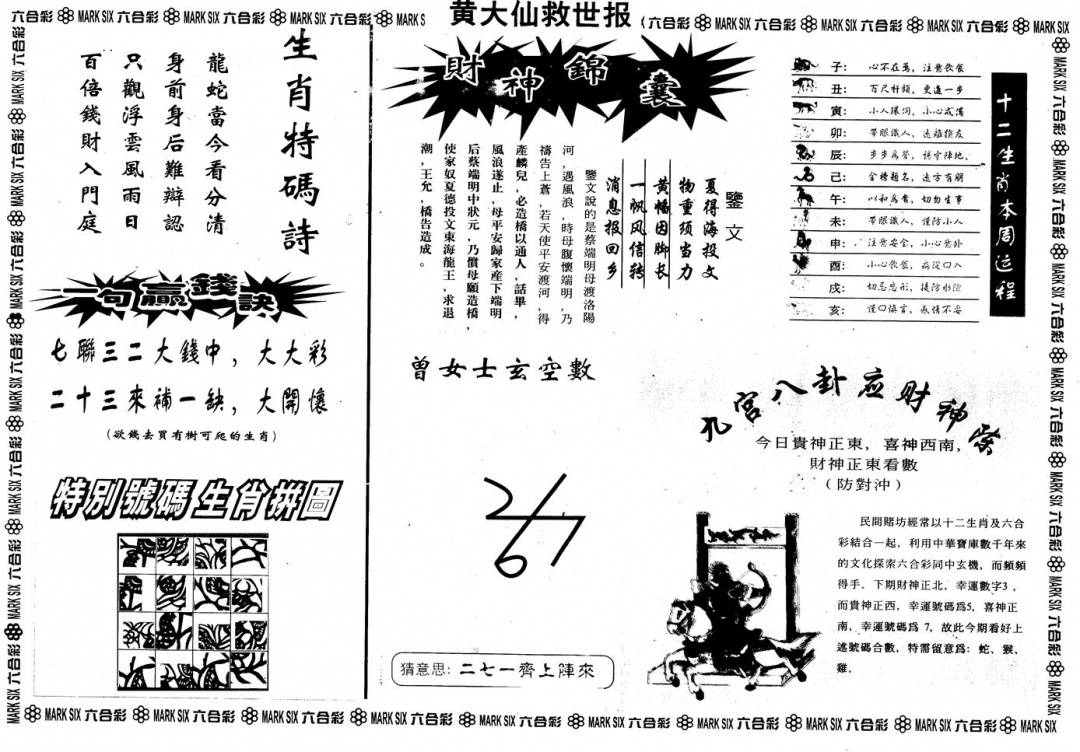 黄大仙救世报
六合彩 MARK SIX 六合彩 MARK SIX 六合彩 MARK SIX 六合彩 MARK S
六合彩 MARK SIX 六合彩 MARK SIX 六合彩 MARK SIX 六合彩
生肖特碼詩
龍蛇當今看分清
身前身后難辯認
只觀浮雲風雨日
百倍錢財入門庭
一句贏錢訣
七聯三二大錢中，大大彩
二十三來補一缺，大開懷
(欲錢去買有樹可爬的生肖)
特別號碼生肖拼圖
財神錦囊
鑒文
夏得海投文
物重须当力
黄幡因脚长
一帆风信转
消息报回乡
鑒文說的是蔡端明母渡洛陽
河，遇風浪，時母腹懷端明，乃
禱告上蒼，若天使平安渡河，得
產麟兒，必造橋以通人，話畢，
風浪遂止，母平安歸家產下端明
后蔡端明中狀元，乃償母願造橋，
使家奴夏德投文東海龍王，求退
潮，王允，橋告造成。
曾女士玄空數
2 6 7
猜意思：二七一齊上陣來
十二生肖本周运程
子：心不在焉，注意饮食
丑：百尺杆頭，更進一步
寅：小人環伺，小心戒備
卯：帶眼識人，遠離損友
辰：步步爲營，謹守陣地．
己：金榜題名，遠方有朋
午：以和爲貴，切勿生事
未：帶眼識人，謹防小人
申：注意安全，小心意外
酉：小心飲食，病從口入
戌：切忌忘形，提防水險
亥：謹口慎言，感情不妥
九宮八卦应财神祭
今日貴神正東，喜神西南，
財神正東看數
（防對沖）
民間賭坊經常以十二生肖及六合
彩結合一起，利用中華寶庫數千年來
的文化探索六合彩同中玄機，而頻頻
得手，下期財神正北，幸運數字3，
而貴神正西，幸運號碼爲5，喜神正
南，幸運號碼爲 7，故此今期看好上
述號碼合數，特需留意爲：蛇、猴、
雞．
MARK SIX 六合彩 MARK SIX 六合彩 MARK SIX 六合彩 MARK SIX 六合彩 MARK SIX 六合彩 MARK SIX 六合彩 MARK SIX 六合彩 MARK SIX 六合彩 MARK SIX 六合彩 MARK SIX